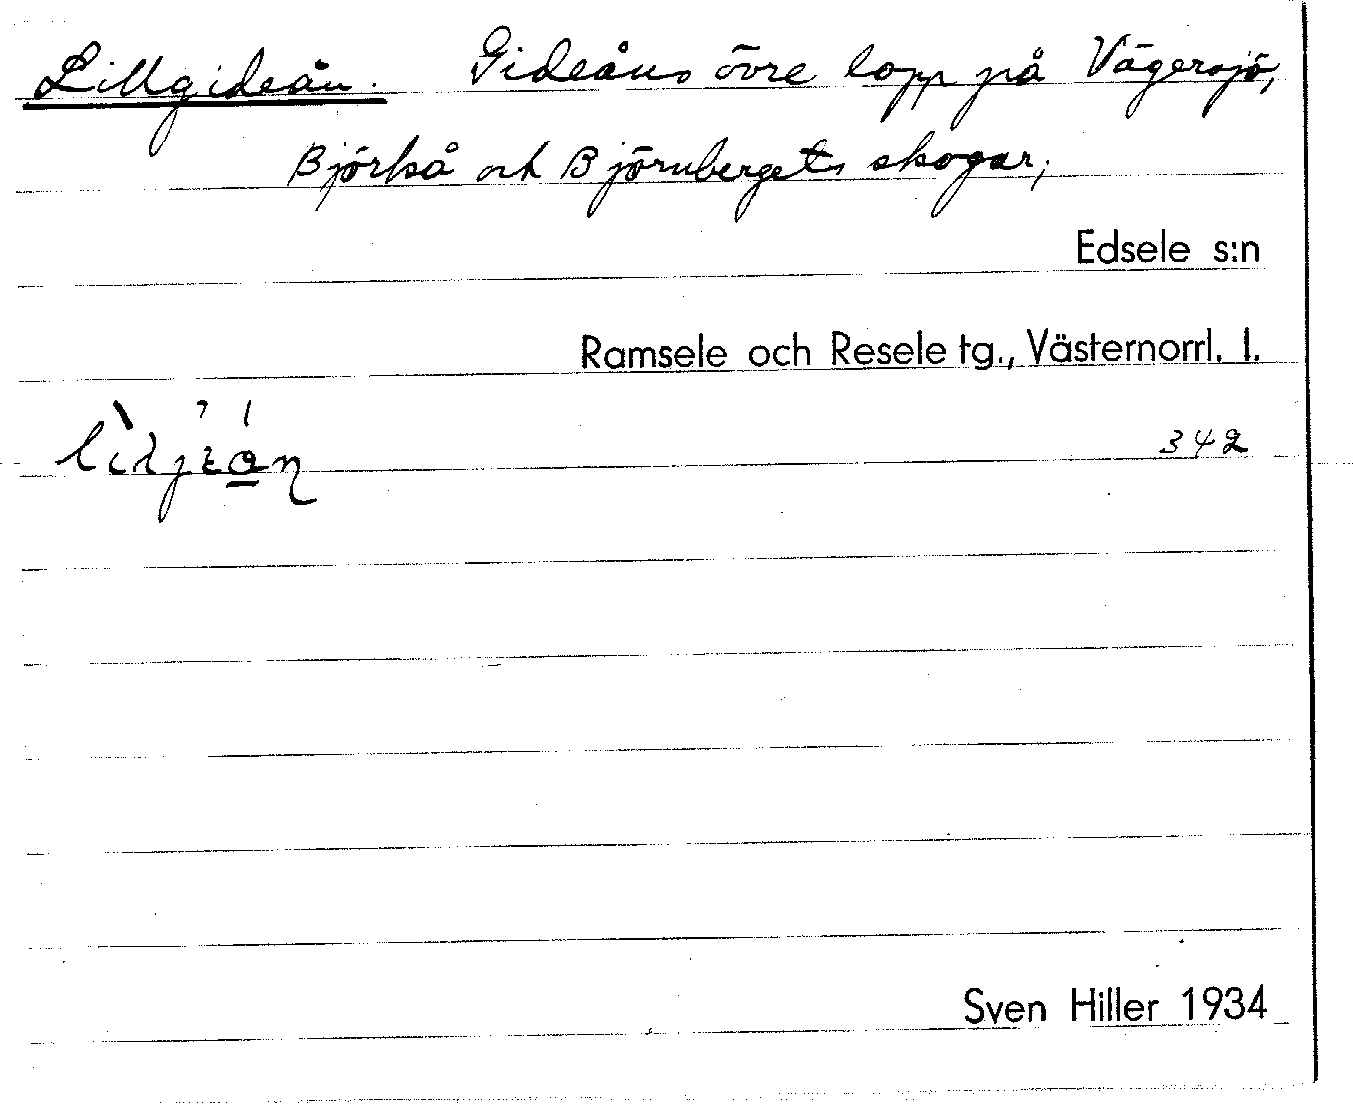 Lillgideån. Gideåns övre lopp på Vägersjö,
Björkå och Björnbergets skogar;
Edsele s:n
Ramsele och Resele tg., Västernorrl. l.
342
Sven Hiller 1934